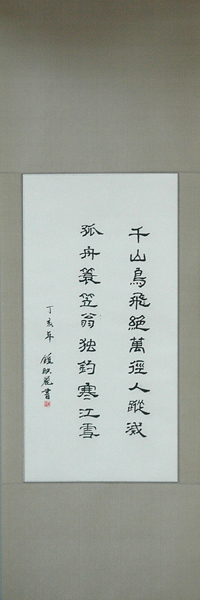 千山鳥飛絕萬徑人蹤滅
孤舟簑笠翁独釣寒江雪
丁亥年 鍾映麗書